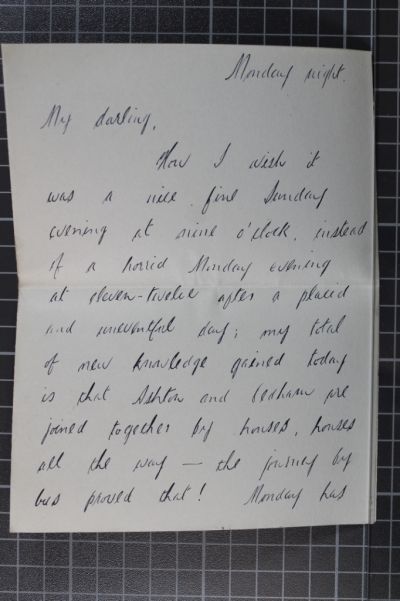 Monday night.
My darling,
How I wish it
was a nice fine Sunday
evening at nine o'clock, instead
of a horrid Monday evening
at eleven-twelve after a placid
and uneventful day; my total
of new knowledge gained today
is that Ashton and are
joined together by houses, houses
all the way — the journey by
bus proved that! Monday has